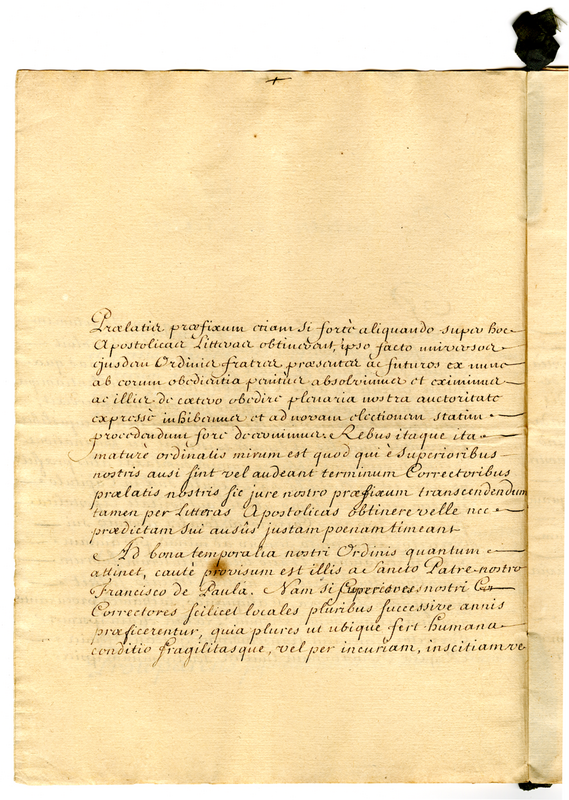 Prælatis præfixum etiam si fortè aliquando super hoc
Apostolicas Litteras obtinerent, ipso facto universos
ejusdem Ordinis fratres præsentes ac futuros ex nunc
ab eorum obedientia penitus absolvimus et eximimus
ac illis de cætero obedire plenaria nostra auctoritate
expressè inhibemus et ad novam electionem statim
procedendum fore decernimus. Rebus itaque ita
maturè ordinatis mirum est quod qui è Superioribus
nostris ausi sint vel audeant terminum Correctoribus
prælatis nostris sic jure nostro præfixum transcendendum
tamen per Litteras Apostolicas obtinere velle nec
prædictam sui ausûs justam poenam timeant
Ad bona temporalia nostri Ordinis quantum
attinet, cautè provisum est illis a Sancto Patre nostro
Francisco de Paula. Nam si Superiores nostri
Correctores scilicet locales pluribus successive annis
præficerentur, quia plures ut ubique fert humana
conditio fragilitasque, vel per incuriam, inscitiamve